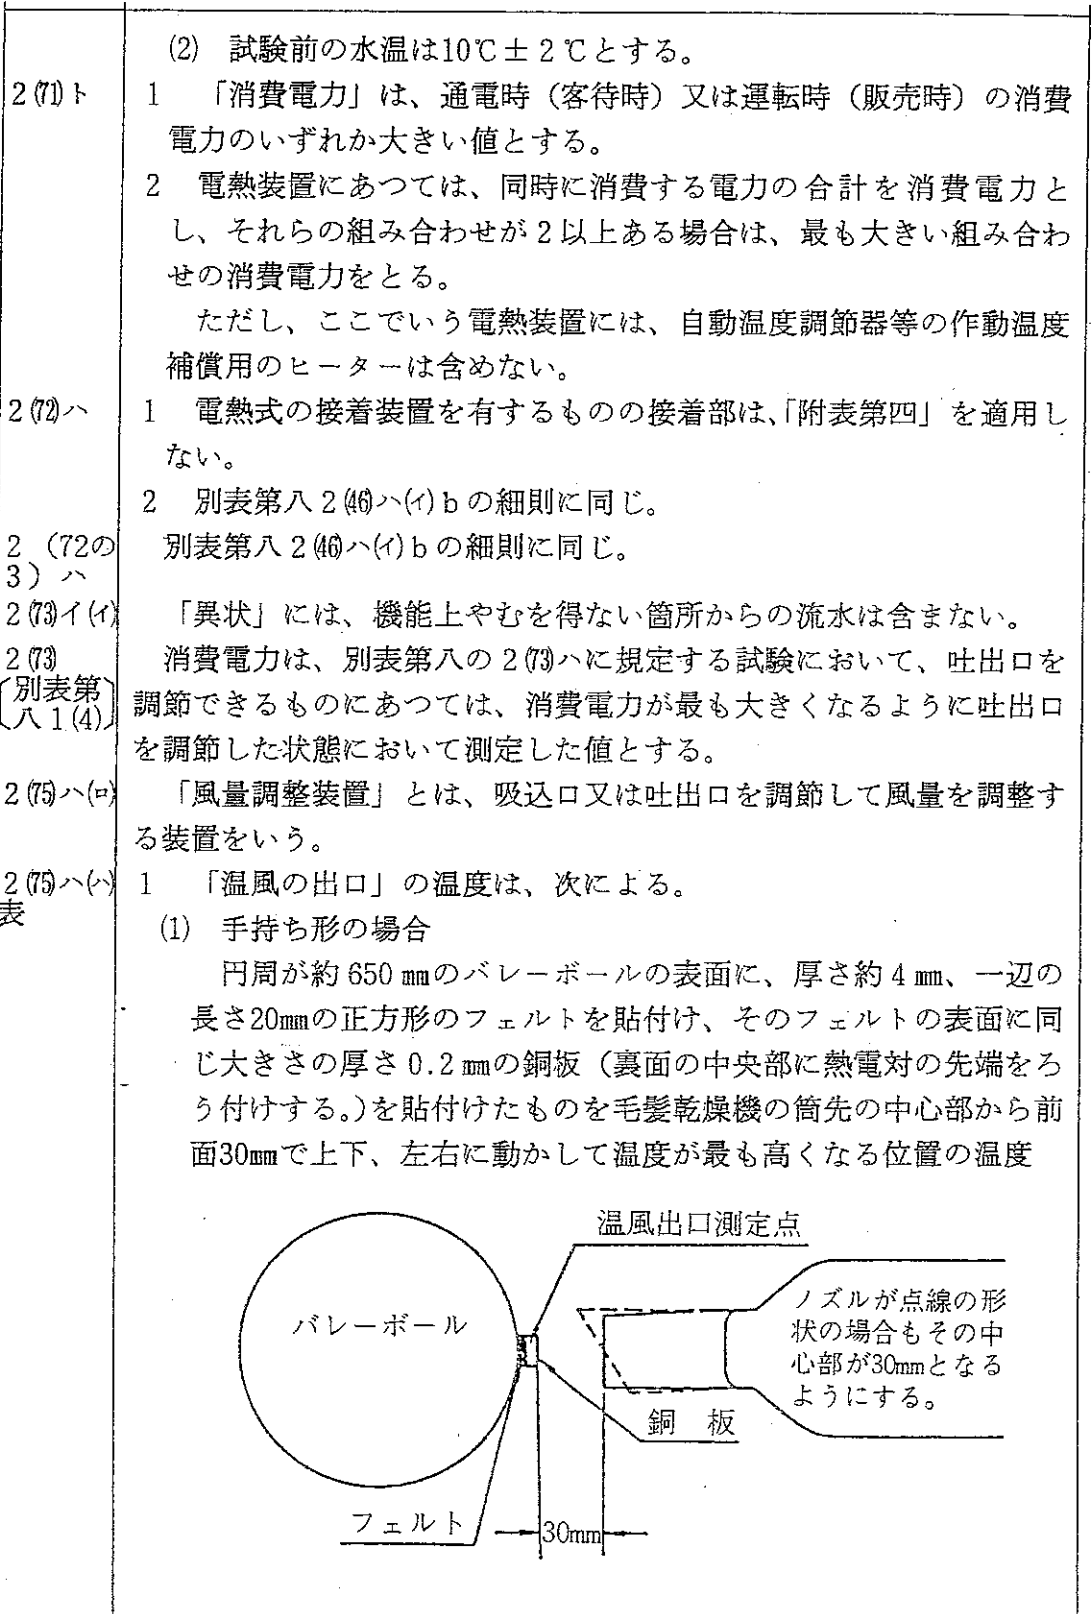 (2) 試験前の水温は10℃±2℃とする。
2(71)ト 1 「消費電力」は、通電時（客待時）又は運転時（販売時）の消費
電力のいずれか大きい値とする。
2 電熱装置にあつては、同時に消費する電力の合計を消費電力と
し、それらの組み合わせが2以上ある場合は、最も大きい組み合わ
せの消費電力をとる。
ただし、ここでいう電熱装置には、自動温度調節器等の作動温度
補償用のヒーターは含めない。
2(72)ハ 1 電熱式の接着装置を有するものの接着部は、「附表第四」を適用し
ない。
2 別表第八2(46)ハ(イ)bの細則に同じ。
2 （72の 別表第八2(46)ハ(イ)bの細則に同じ。
3）ハ
2(73)イ(イ) 「異状」には、機能上やむを得ない箇所からの流水は含まない。
2(73) 消費電力は、別表第八の2(73)ハに規定する試験において、吐出口を
〔別表第八1(4)〕 調節できるものにあつては、消費電力が最も大きくなるように吐出口
を調節した状態において測定した値とする。
2(75)ハ(ロ) 「風量調整装置」とは、吸込口又は吐出口を調節して風量を調整す
る装置をいう。
2(75)ハ(ハ) 1 「温風の出口」の温度は、次による。
表 (1) 手持ち形の場合
円周が約650㎜のバレーボールの表面に、厚さ約4㎜、一辺の
長さ20㎜の正方形のフェルトを貼付け、そのフェルトの表面に同
じ大きさの厚さ0.2㎜の銅板（裏面の中央部に熱電対の先端をろ
う付けする。)を貼付けたものを毛髪乾燥機の筒先の中心部から前
面30㎜で上下、左右に動かして温度が最も高くなる位置の温度
温風出口測定点
バレーボール
ノズルが点線の形
状の場合もその中
心部が30mmとなる
ようにする。
銅 板
フェルト
30mm